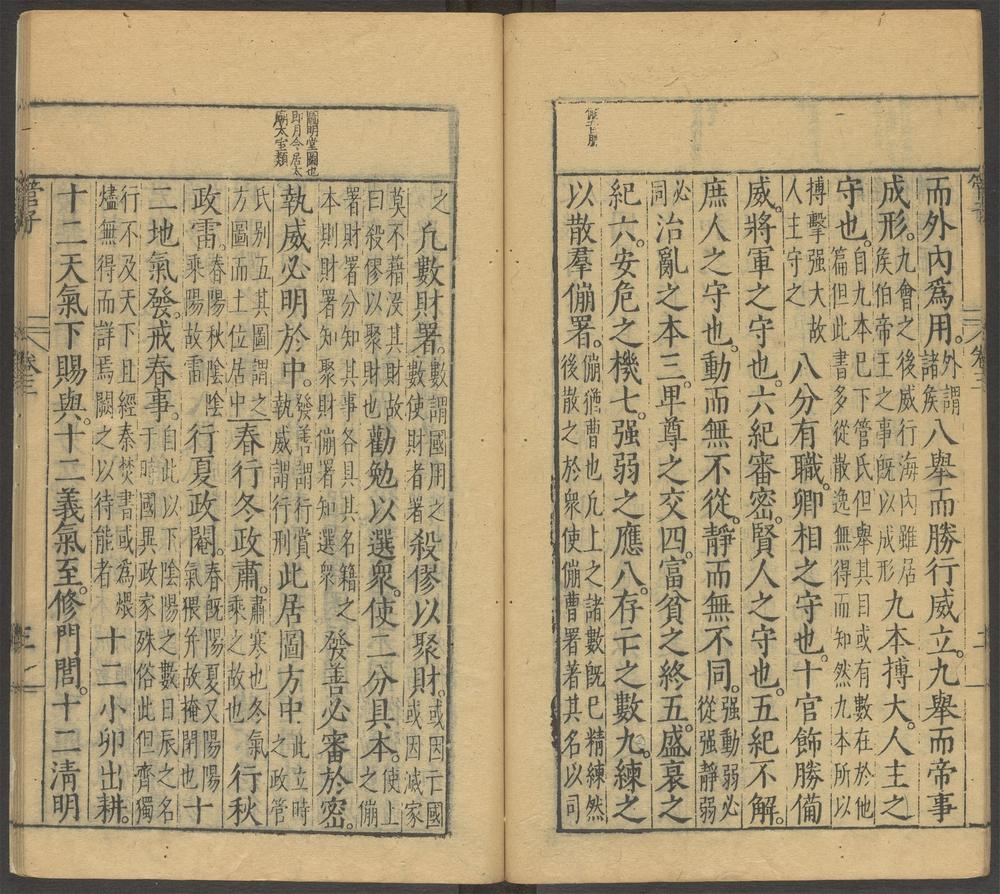 管子 卷三 二
而外內爲用。外謂諸矦八舉而勝行威立。九舉而帝事
成形。九會之後威行海內雖居矦伯帝王之事旣以成形九本搏大。人主之
守也。自九本巳下管氏但舉其目或有數在於他篇但此書多從散逸無得而知然九本所以
搏擊强大故人主守之八分有職。卿相之守也。十官飾勝備
威。將軍之守也。六紀審密。賢人之守也。五紀不解。
庶人之守也。動而無不從。靜而無不同。强動弱必從强靜弱
必同治亂之本三。卑尊之交四。富貧之終五。盛衰之
紀六。安危之機七。强弱之應八。存亡之數九。練之
以散羣傰署。傰猶曹也凢上之諸數旣巳精練然後散之於衆使傰曹署著其名以司
之凢數財署。數謂國用之數使財者署殺僇以聚財。或因亡國或因滅家
莫不藉沒其財故曰殺僇以聚財也勸勉以選衆。使二分具本。使上之傰
署財署分知其事各具其名籍之本則財署知聚財傰署知選衆發善必審於密。
執威必明於中。發善謂行賞執威謂行刑此居圖方中此立時之政管
氏别五其圖謂之方圖而土位居中春行冬政肅。肅寒也冬氣乘之故也行秋
政雷。春陽秋陰陰乘陽故雷行夏政閹。春旣陽夏又陽陽氣猥并故掩閉也十
二地氣發。戒春事。自此以下陰陽之數日辰之名于時國異政家殊俗此但齊獨
行不及天下且經秦焚書或爲煨燼無得而詳焉闕之以待能者十二小卯出耕。
十二天氣下賜與。十二義氣至。修門閭。十二淸明
圖明堂圖也
即月令居太
廟太室類
管子 卷三 三